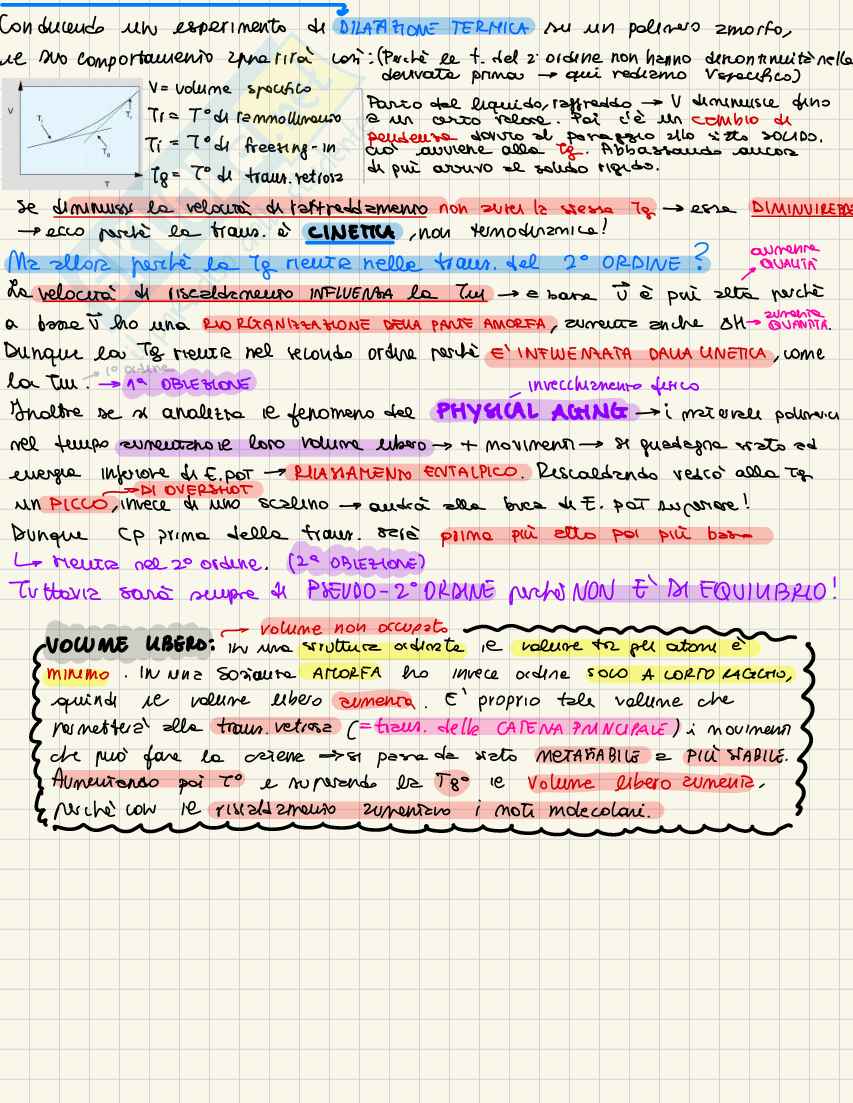 Conducendo un esperimento di DILATAZIONE TERMICA su un polimero amorfo,
il suo comportamento apparirà così: (Perchè le t. del 2° ordine non hanno discontinuità nella
derivata prima → qui vediamo Vspecifico)
V
T
Tr
Ti
Tg
V = volume specifico
Tr = T° di rammollimento
Ti = T° di freezing-in
Tg = T° di trans. vetrosa
Parto dal liquido, raffreddo → V diminuisce fino
a un certo valore. Poi c'è un cambio di
pendenza dovuto al passaggio allo stato SOLIDO.
ciò avviene alla Tg. Abbassando ancora
di più arrivo al solido rigido.
Se diminuissi la velocità di raffreddamento non avrei la stessa Tg → essa DIMINUIREBBE
→ ecco perchè la trans. è CINETICA, non termodinamica!
Ma allora perchè la Tg rientra nelle trans. del 2° ORDINE?
aumenta
QUALITÀ
La velocità di riscaldamento INFLUENZA la Tm → a bassa v è più alta perchè
a bassa v ho una RIORGANIZZAZIONE DELLA PARTE AMORFA, aumenta anche ΔH → aumenta
QUANTITÀ.
Dunque la Tg rientra nel secondo ordine perchè E' INFLUENZATA DALLA CINETICA, come
la Tm. → 1ª OBIEZIONE
1° ordine
invecchiamento fisico
Inoltre se si analizza il fenomeno del PHYSICAL AGING → i materiali polimerici
nel tempo aumentano il loro volume libero → + movimenti → si guadagna stato ad
energia inferiore di E. pot → RILASSAMENTO ENTALPICO. Riscaldando vedrò alla Tg
un PICCO, invece di uno scalino → andrà alla buca di E. pot superiore!
→ DI OVERSHOT
Dunque Cp prima della trans. sarà prima più alto poi più basso
↳ rientra nel 2° ordine. (2ª OBIEZIONE)
Tuttavia sarà sempre di PSEUDO-2° ORDINE perchè NON E' DI EQUILIBRIO!
→ volume non occupato
VOLUME LIBERO: in una struttura ordinata il volume tra gli atomi è
minimo. In una struttura AMORFA ho invece ordine SOLO A CORTO RAGGIO,
quindi il volume libero aumenta. E' proprio tale volume che
permetterà alla trans. vetrosa (= trans. della CATENA PRINCIPALE) i movimenti
che può fare la catena → si passa da stato METASTABILE a PIÙ STABILE.
Aumentando poi T° e superando la Tg° il Volume libero aumenta,
perchè con il riscaldamento aumentano i moti molecolari.